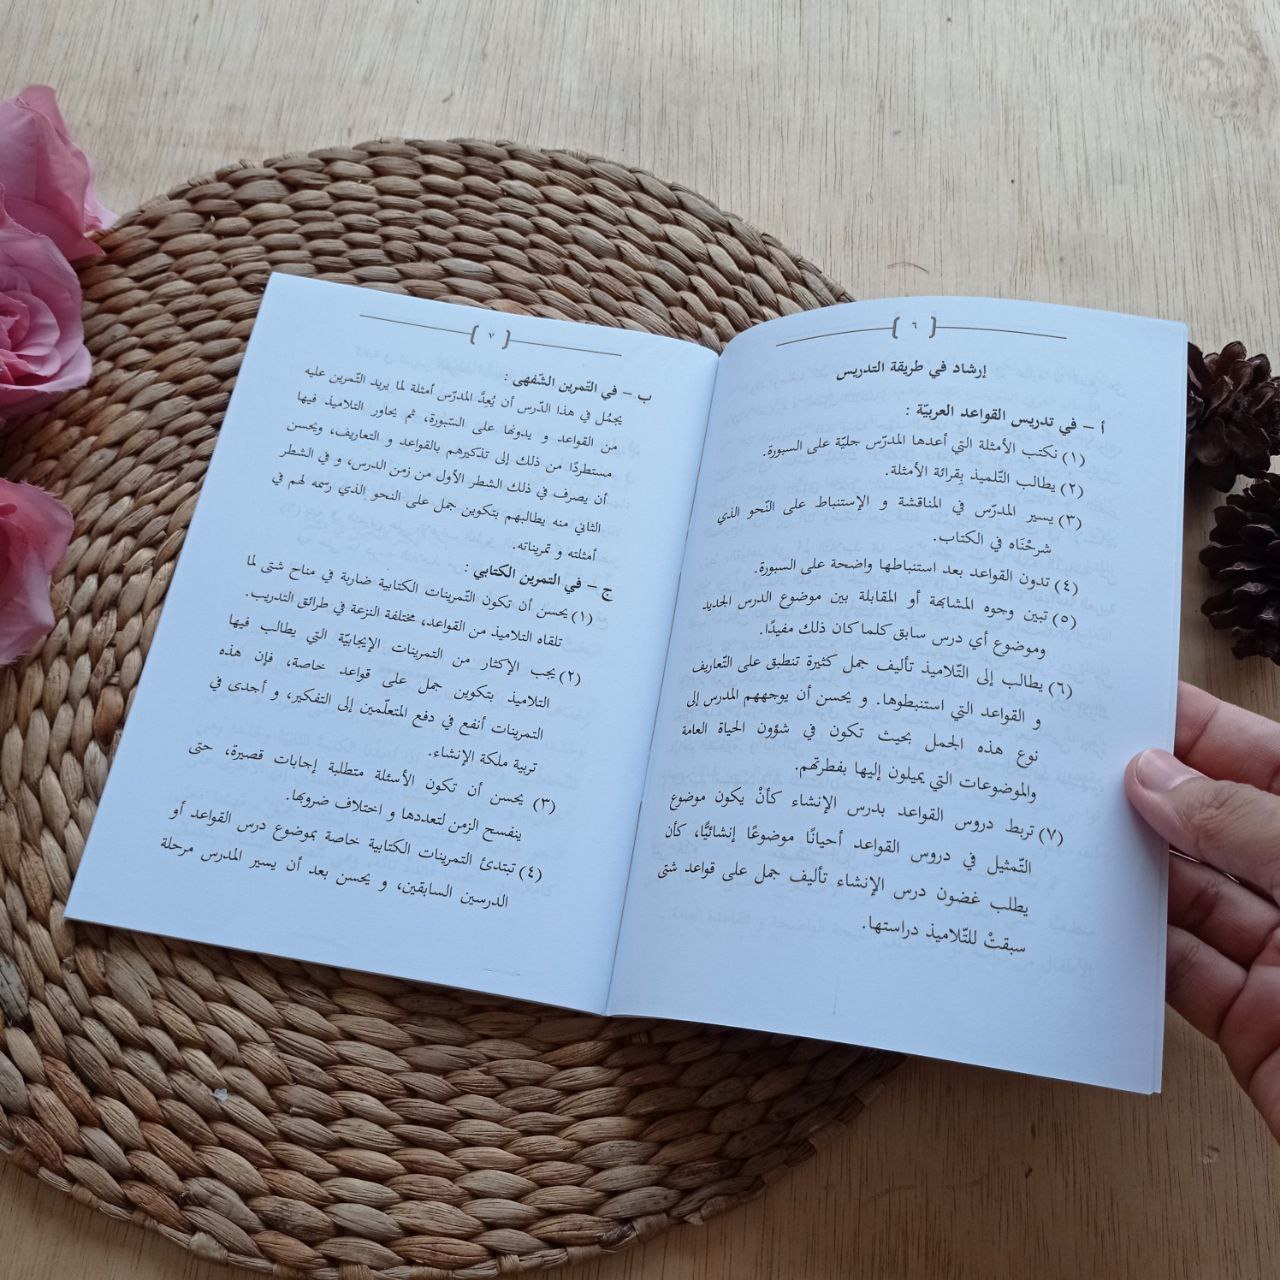 ٦
إرشاد في طريقة التدريس
أ – في تدريس القواعد العربيّة :
(١) نكتب الأمثلة التي أعدها المدرّس جليّة على السبورة.
(٢) يطالب التّلميذ بِقرائة الأمثلة.
(٣) يسير المدرّس في المناقشة و الإستنباط على النّحو الذي
شرحْنَاه في الكتاب.
(٤) تدون القواعد بعد استنباطها واضحة على السبورة.
(٥) تبين وجوه المشابهة أو المقابلة بين موضوع الدرس الجديد
وموضوع أي درس سابق كلما كان ذلك مفيدًا.
(٦) يطالب إلى التّلاميذ تأليف جمل كثيرة تنطبق على التّعاريف
و القواعد التي استنبطوها. و يحسن أن يوجههم المدرس إلى
نوع هذه الجمل بحيث تكون في شؤون الحياة العامة
والموضوعات التي يميلون إليها بفطرتهم.
(٧) تربط دروس القواعد بدرس الإنشاء كأنْ يكون موضوع
التّمثيل في دروس القواعد أحيانًا موضوعًا إنشائيًّا، كأن
يطلب غضون درس الإنشاء تأليف جمل على قواعد شتى
سبقتْ للتّلاميذ دراستها.
٧
ب – في التّمرين الشّفهى :
يجمُل في هذا الدّرس أن يُعِدَّ المدرّس أمثلة لما يريد التّمرين عليه
من القواعد و يدونها على السّبورة، ثم يحاور التلاميذ فيها
مستطردًا من ذلك إلى تذكيرهم بالقواعد و التعاريف، ويحسن
أن يصرف في ذلك الشطر الأول من زمن الدرس، و في الشطر
الثاني منه يطالبهم بتكوين جمل على النحو الذي رسمه لهم في
أمثلته و تمريناته.
ج – في التمرين الكتابي :
(١) يحسن أن تكون التّمرينات الكتابية ضاربة في مناح شتى لما
تلقاه التلاميذ من القواعد، مختلفة النزعة في طرائق التدريب.
(٢) يجب الإكثار من التمرينات الإيجابيّة التي يطالب فيها
التلاميذ بتكوين جمل على قواعد خاصة، فإن هذه
التمرينات أنفع في دفع المتعلّمين إلى التفكير، و أجدى في
تربية ملكة الإنشاء.
(٣) يحسن أن تكون الأسئلة متطلبة إجابات قصيرة، حتى
ينفسح الزمن لتعددها و اختلاف ضروبها.
(٤) تبتدئ التمرينات الكتابية خاصة بموضوع درس القواعد أو
الدرسين السابقين، و يحسن بعد أن يسير المدرس مرحلة